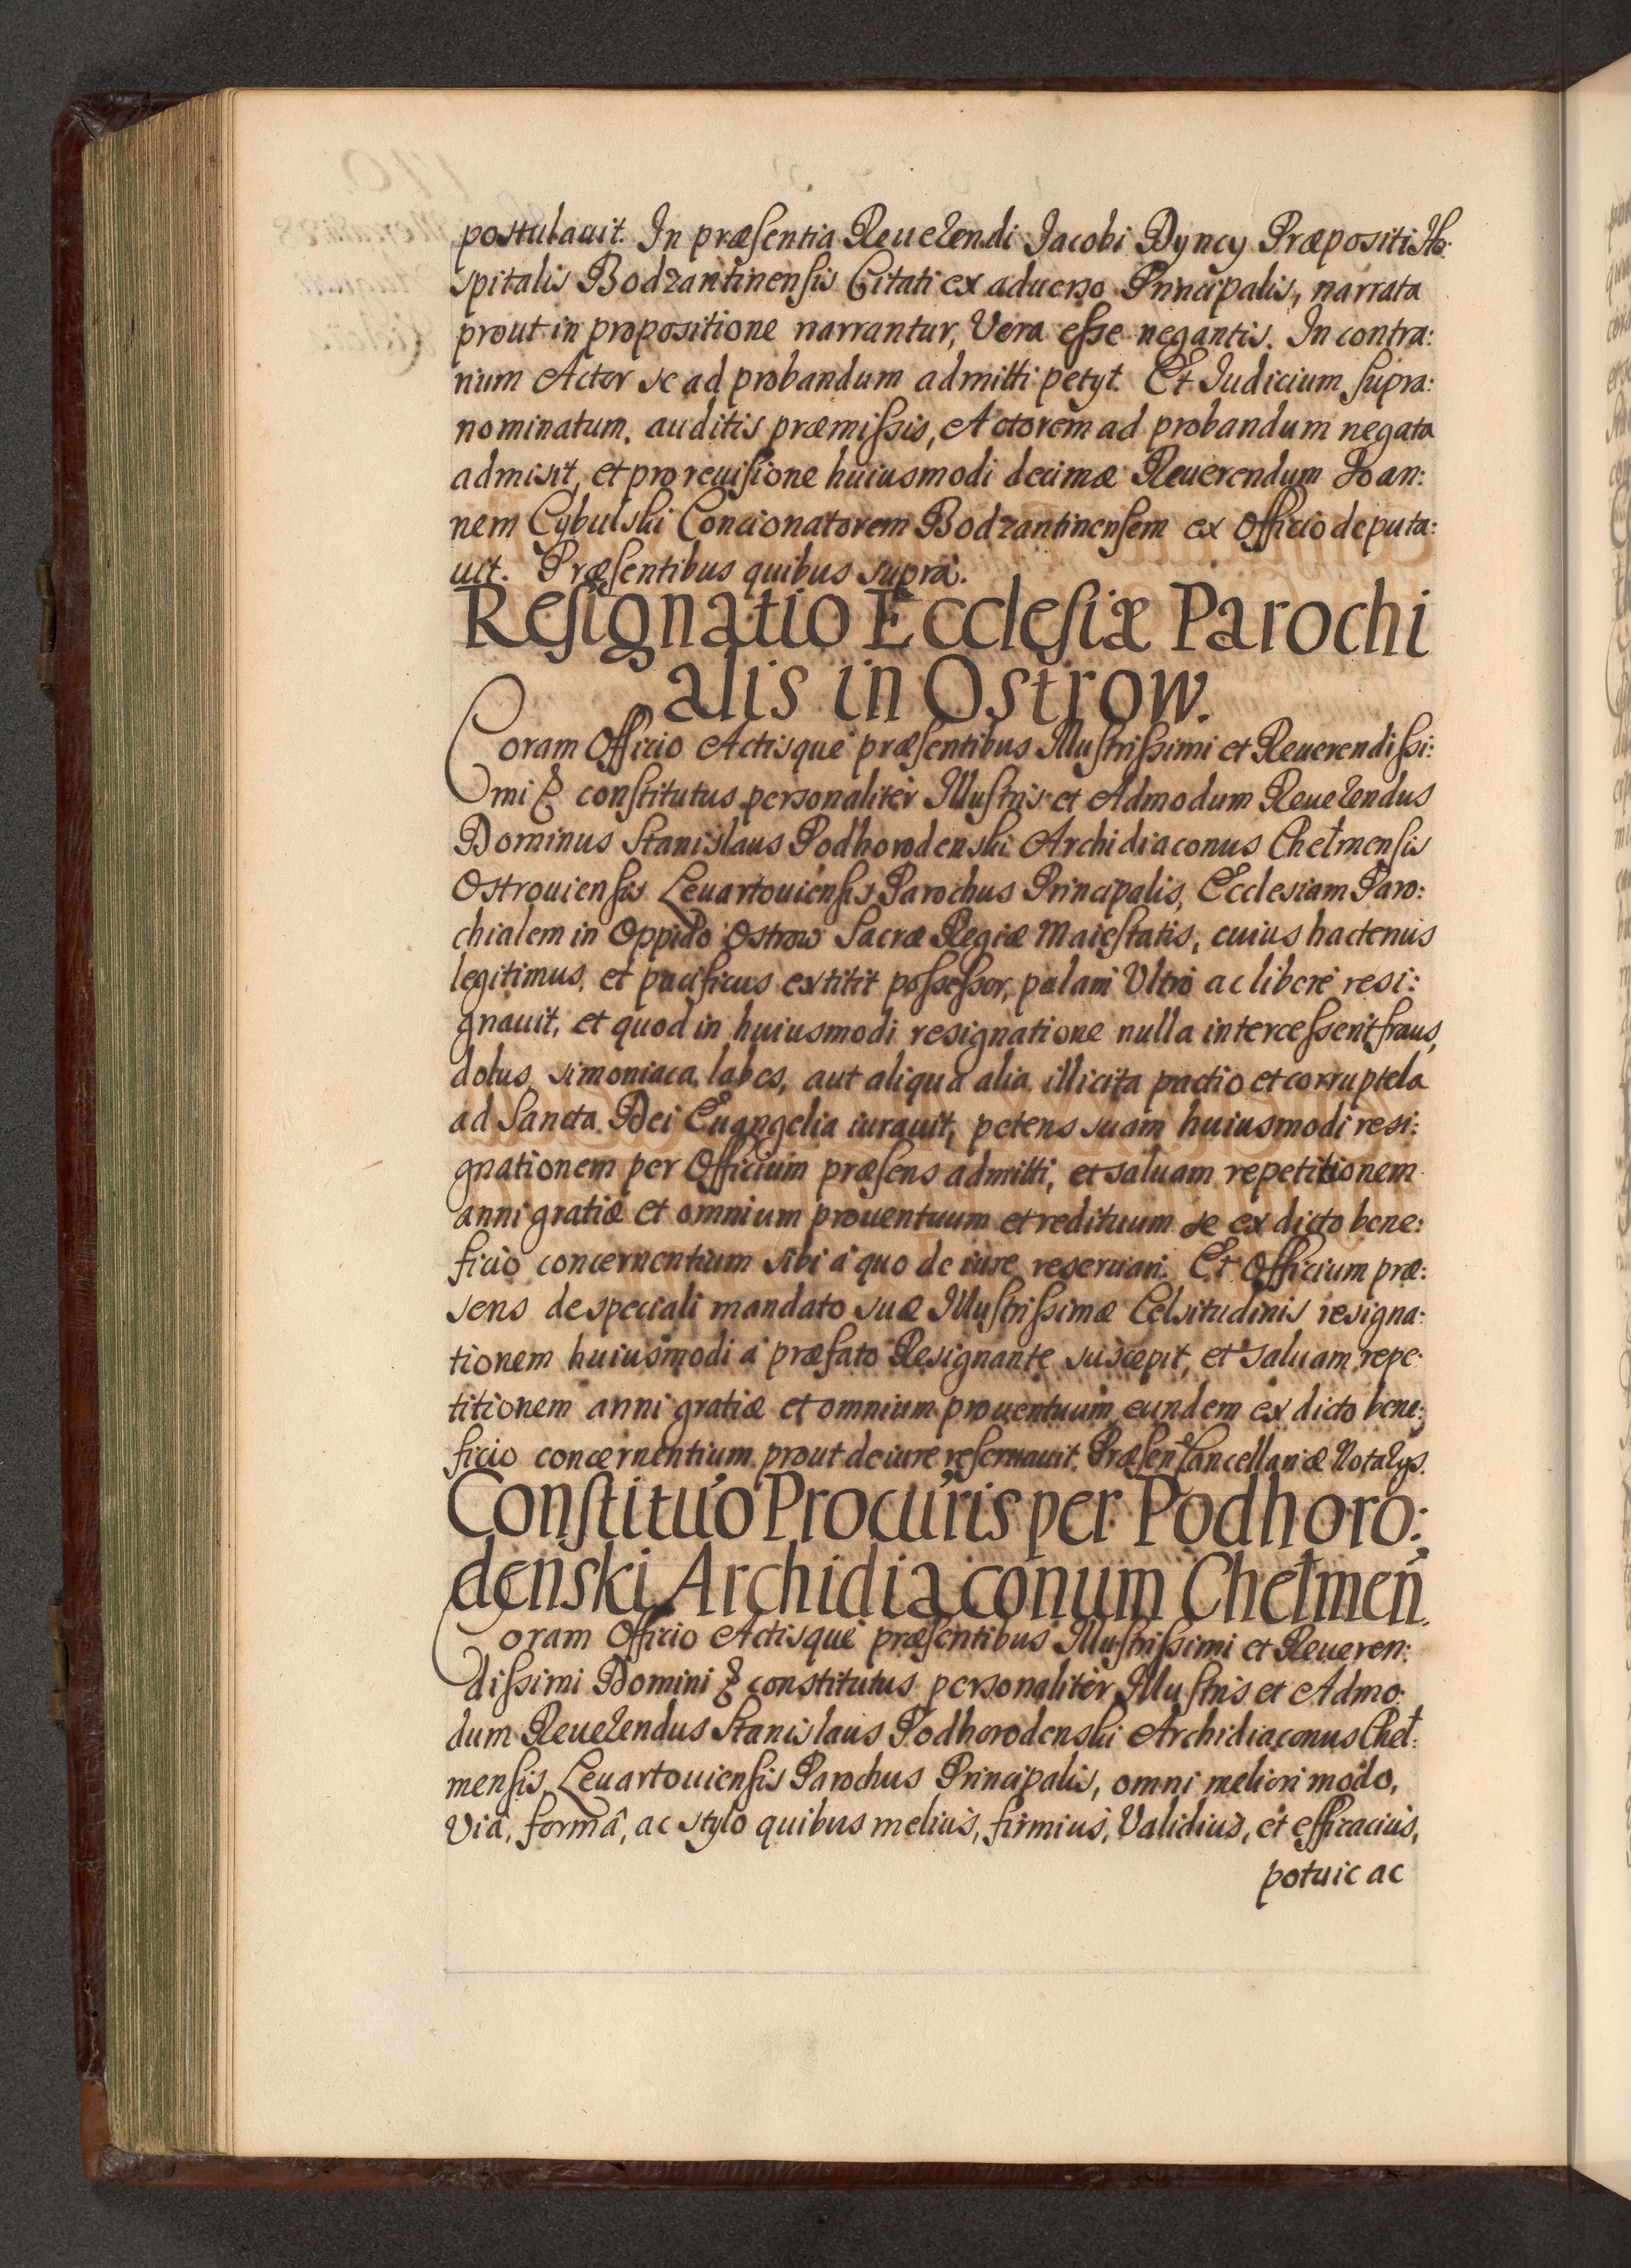 postulauit. In præſentia Reuerendi Jacobi Dyncy Præpositi Ho:
spitalis Bodzantinenſis Citati ex aduerso Principalis, narrata
prout in propositione narrantur, Vera eſse negantis. In contra:
rium Actor se ad probandum admitti petyt. Et Iudicium ſupra:
nominatum, auditis præmiſsis, Actorem ad probandum negata
admisit, et pro reuiſione huiusmodi decimæ Reuerendum Joan:
nem Cybulski Concionatorem Bodzantinenſem ex Officio deputa:
uit. Præſentibus quibus suprà.
Reſignatio Eccleſiæ Parochi
alis in Ostrow.
Coram Officio Actisque præſentibus Illuſtriſsimi et Reuerendiſsi:
mi & conſtitutus personaliter Illuſtris et Admodum Reuerendus
Dominus Stanislaus Podhorodenski Archidiaconus Chełmenſis
Ostrouienſis Leuartouienſis Parochus Principalis, Ecclesiam Paro:
chialem in Oppido Ostrow Sacræ Regiæ Maieſtatis, cuius hactenus
legitimus, et pacificus extitit poſseſsor, palam Vltrò ac liberè resi:
gnauit, et quod in huiusmodi resignatione nulla interceſserit fraus,
dolus, simoniaca labes, aut aliqua alia illicita pactio et corruptela
ad Sancta Dei Euangelia iurauit, petens suam huiusmodi resi:
gnationem per Officium præſens admitti, et saluam repetitionem
anni gratiæ et omnium prouentuum et redituum se ex dicto bene:
ficio concernentium sibi à quo de iure reseruari. Et Officium præ:
sens de speciali mandato suæ Illuſtriſsimæ Celsitudinis resigna:
tionem huiusmodi à præfato Resignante suscepit, et saluam repe:
titionem anni gratiæ et omnium prouentuum eundem ex dicto bene:
ficio concernentium prout de iure reſeruauit. Præſen Cancellariæ Notarys.
Conſtituo Procuris per Podhoro:
denski Archidiaconum Chełmen.
Coram Officio Actisque præſentibus Illuſtriſsimi et Reueren:
diſsimi Domini & constitutus personaliter Illuſtris et Admo:
dum Reuerendus Stanislaus Podhorodenski Archidiaconus Cheł:
menſis, Leuartouienſis Parochus Principalis, omni meliori modo,
Via, formâ, ac stylo quibus melius, firmius, Validius, et efficacius,
potuic ac